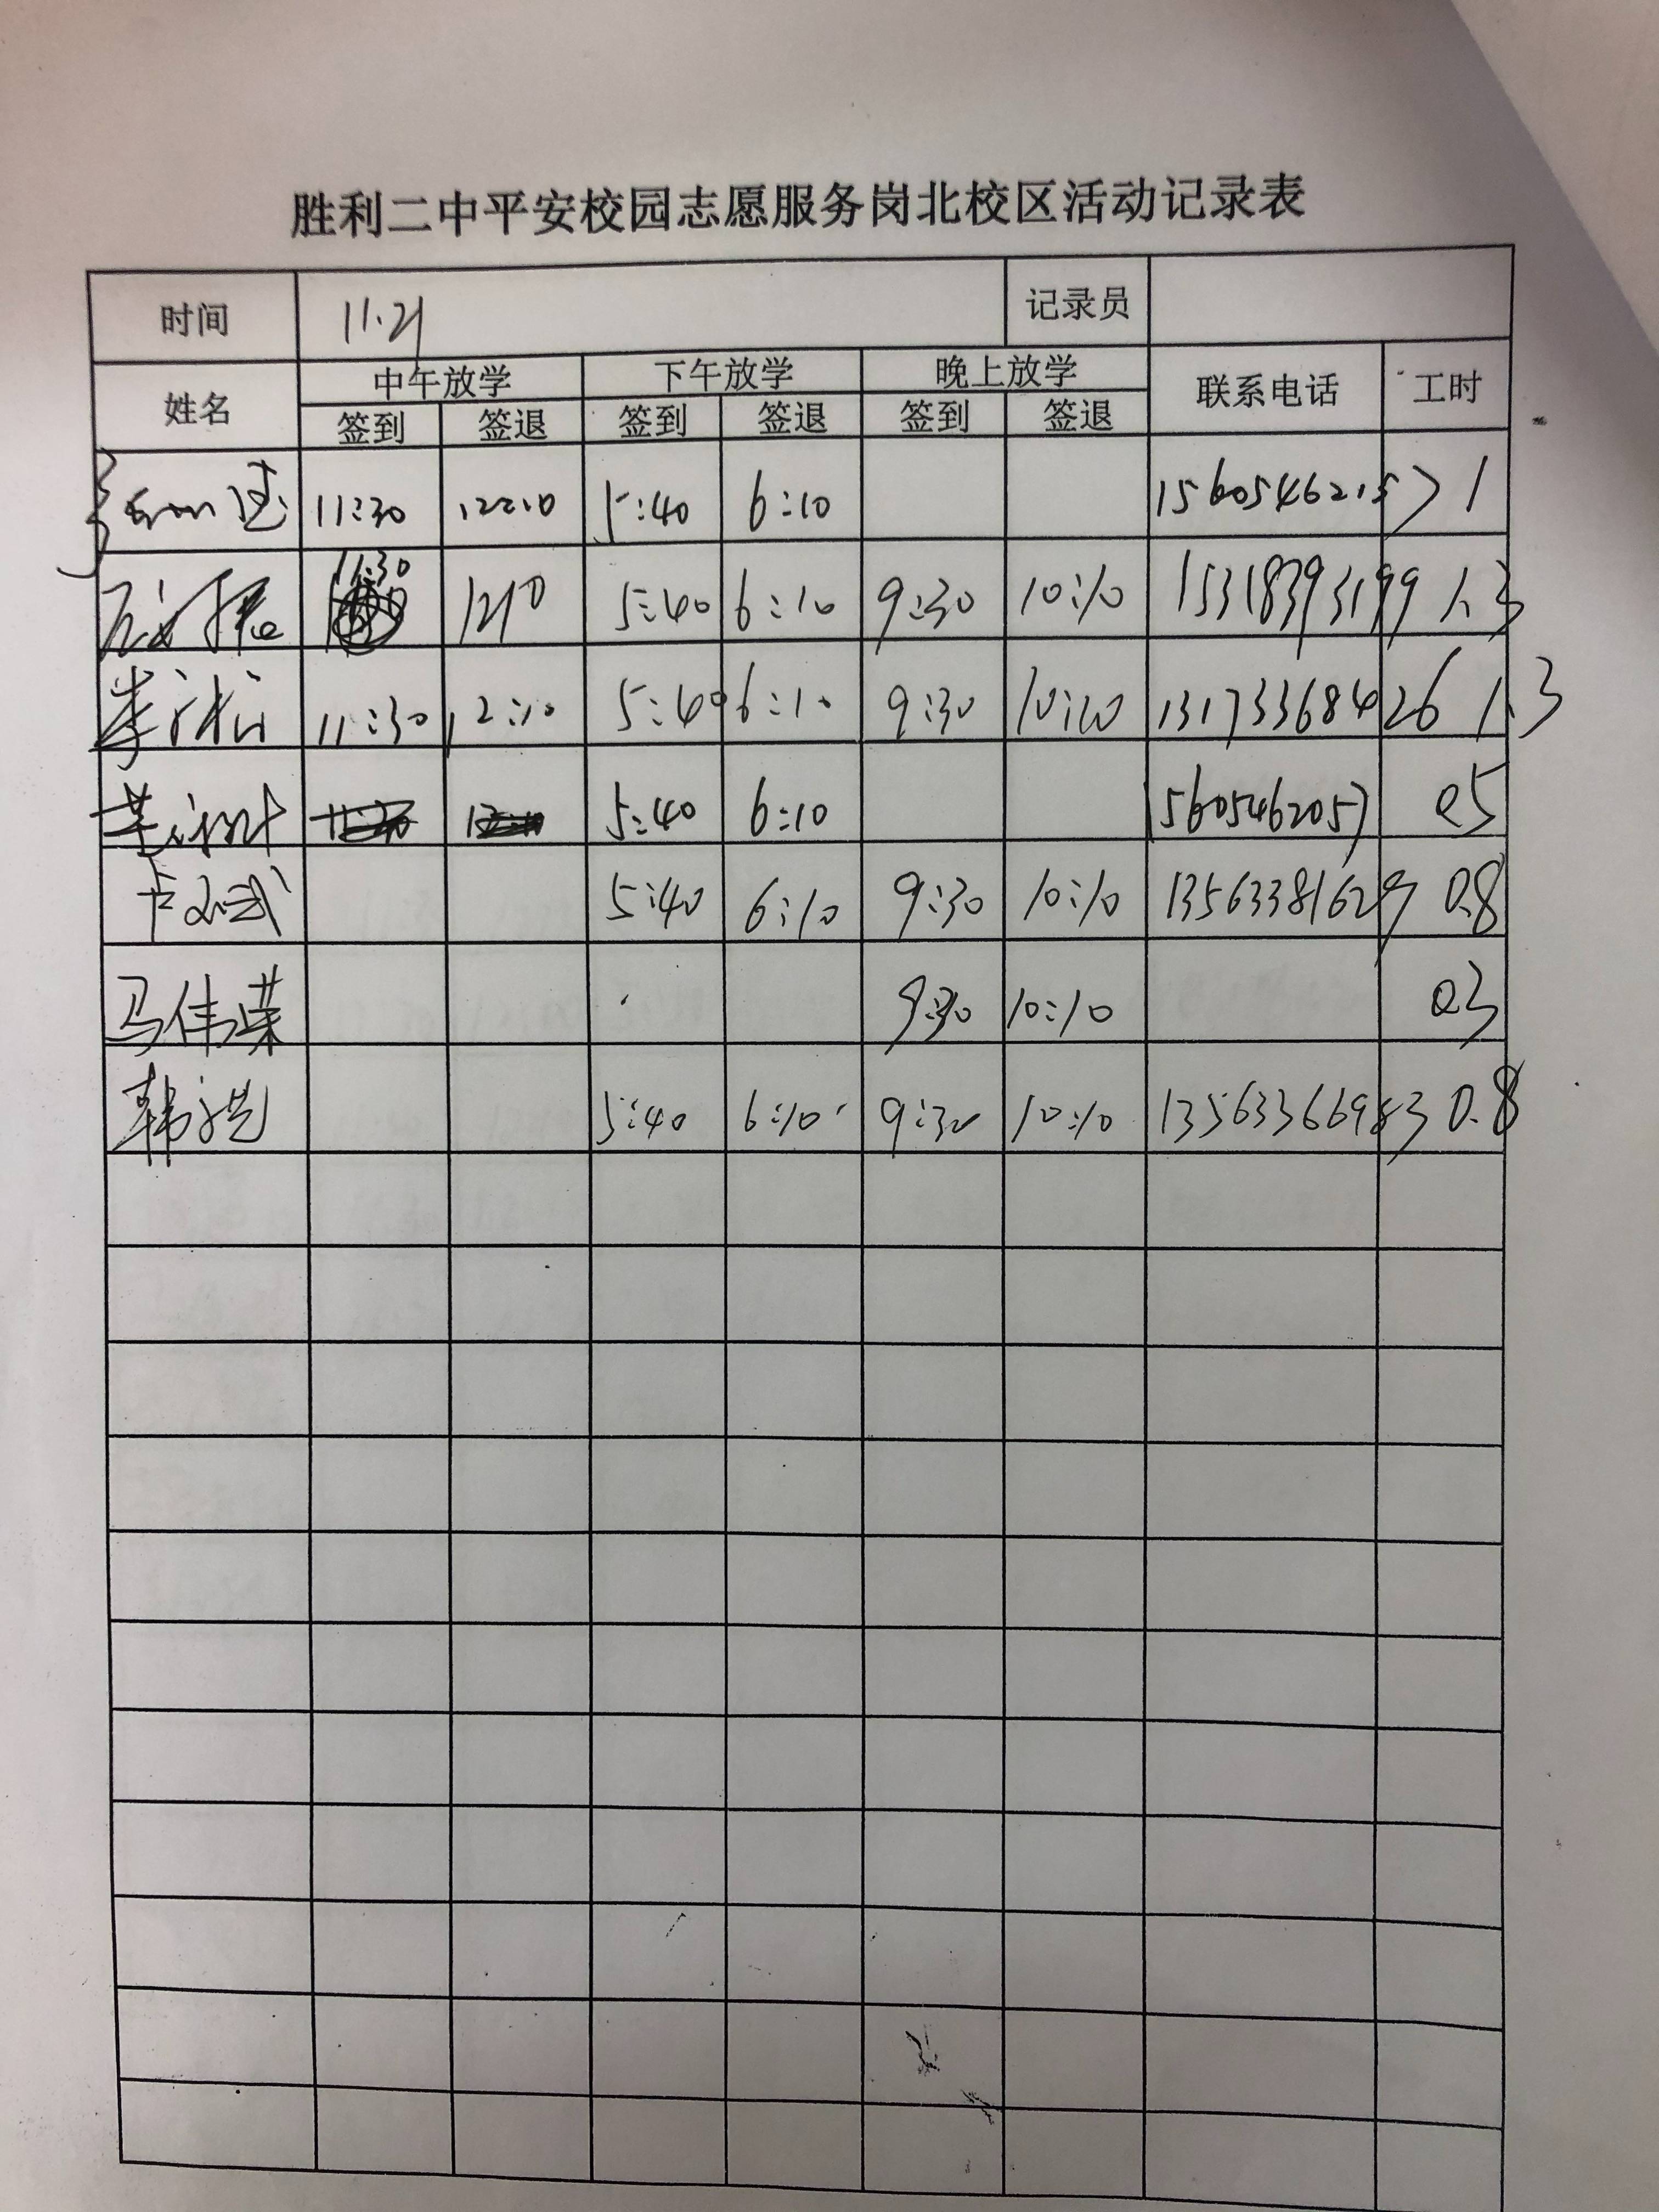 胜利二中平安校园志愿服务岗北校区活动记录表
时间 11.21 记录员
姓名 中午放学 下午放学 晚上放学 联系电话 工时
签到 签退 签到 签退 签到 签退
11:30 12:10 5:40 6:10 15605462157 1
11:30 1210 5:40 6:10 9:30 10:10 15318393199 1.3
11:30 12:10 5:40 6:10 9:30 10:10 13173368426 1.3
5:40 6:10 15605462057 0.5
5:40 6:10 9:30 10:10 13563381629 0.8
马伟荣 9:30 10:10 0.3
韩 5:40 6:10 9:30 10:10 13563366983 0.8